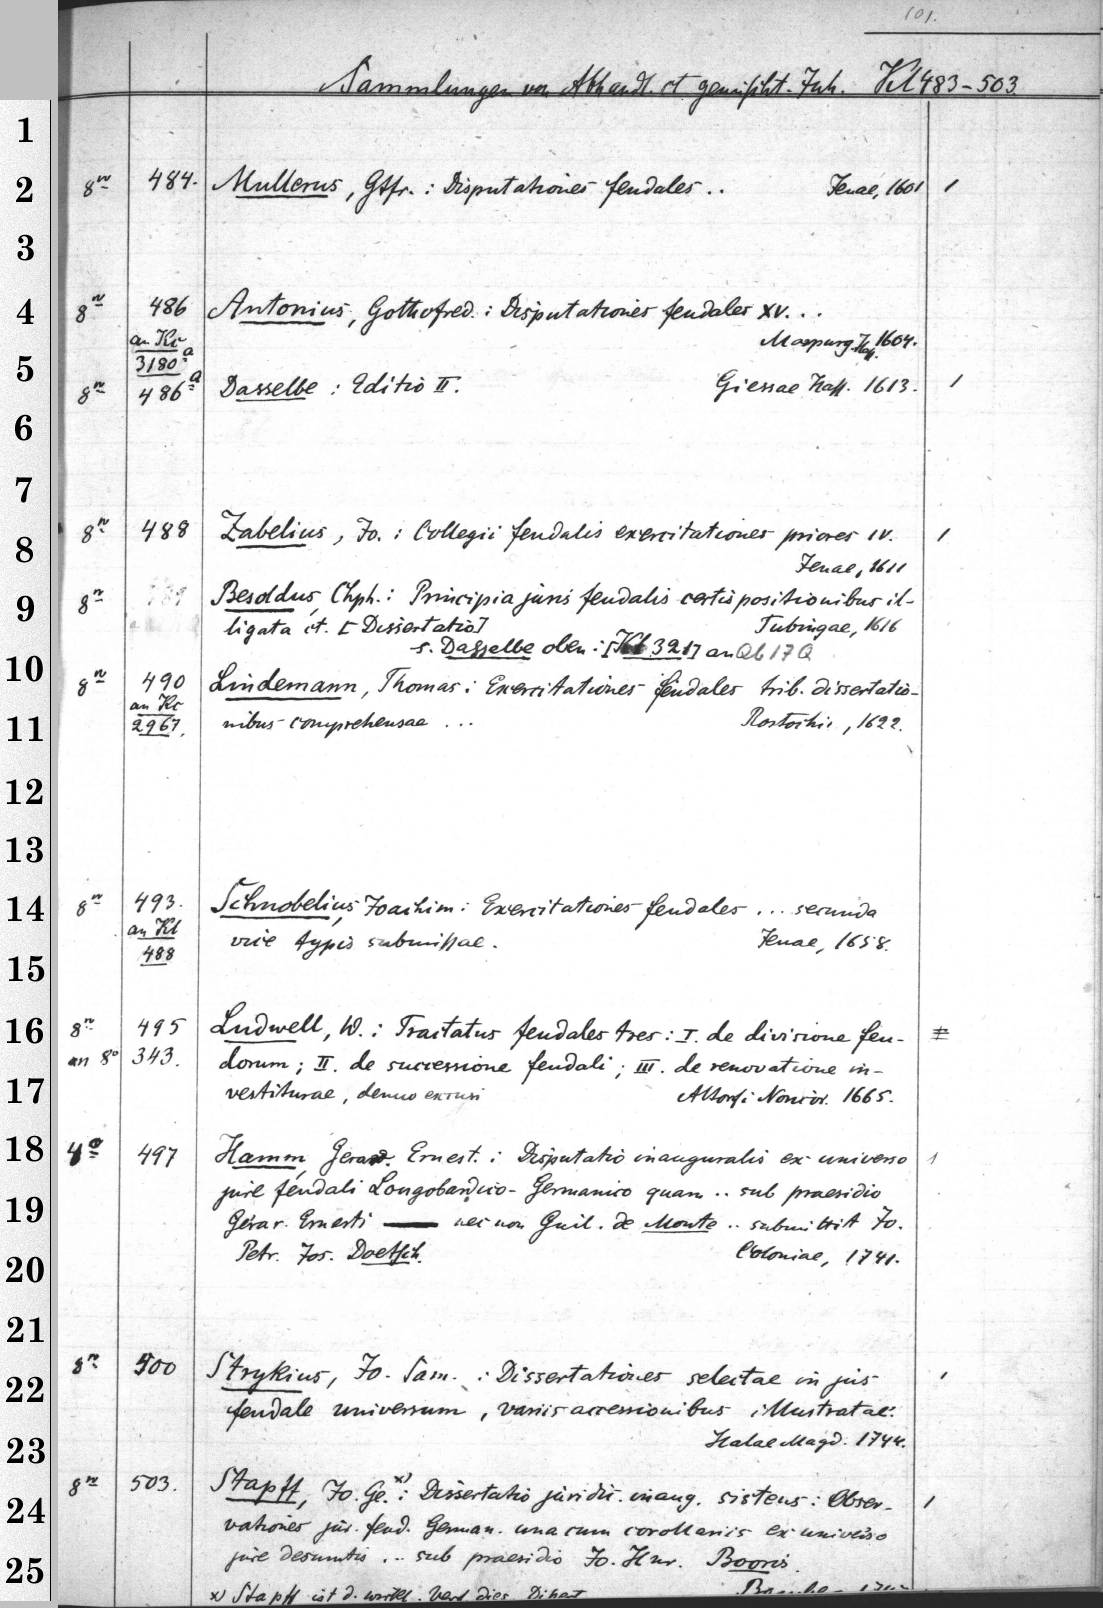 101.
Sammlungen von Abhandl. et gemischt. Inh. Kl 483-503
1
2 8° 484. Mullerus, Gtfr. : Disputationes feudales .. Jenae, 1601 1
3
4 8° 486 Antonius, Gothofred. : Disputationes feudales XV. . .
an Kc Marpurg. 1604.
5 3180a
8° 486a Dasselbe : Editio II. Giessae Hass. 1613. 1
6
7
8 8° 488 Zabelius, Jo. : Collegii feudalis exercitationes priores IV. 1
Jenae, 1611
9 8° 489 Besoldus, Chph. : Principia juris feudalis certis positionibus il-
ligata et. [Dissertatio] Tubingae, 1616
s. Dasselbe oben : [Kl 321] an Qb 17 Q
10 8° 490 Lindemann, Thomas : Exercitationes feudales trib. dissertatio-
an Kc
11 2967. nibus comprehensae ... Rostochii, 1622.
12
13
14 8° 493. Schnobelius, Joachim : Exercitationes feudales ... secunda
an Kl vice typis submissae. Jenae, 1658.
15 488
16 8° 495 Ludwell, W. : Tractatus feudales tres : I. de divisione feu-
an 8° 343. dorum ; II. de successione feudali ; III. de renovatione in-
17 vestiturae, denuo excusi Altorfi Noricor. 1665.
18 4° 497 Hamm, Gerard. Ernest. : Disputatio inauguralis ex universo 1
jure feudali Longobardico-Germanico quam .. sub praesidio
19 Gerar. Ernesti — nec non Guil. de Monte .. submittit Jo.
20 Petr. Jos. Doetsch. Coloniae, 1741.
21
22 8° 500 Strykius, Jo. Sam. : Dissertationes selectae in jus
feudale universum, variis accessionibus illustratae.
23 Halae Magd. 1744.
24 8° 503. Stapff, Jo. Ge. x) : Dissertatio juridic. inaug. sistens : Obser- 1
vationes jur. feud. German. una cum corollariis ex universo
25 jure desumtis ... sub praesidio Jo. Henr. Booris.
x) Stapff ist d. wirkl. Verf. dies.